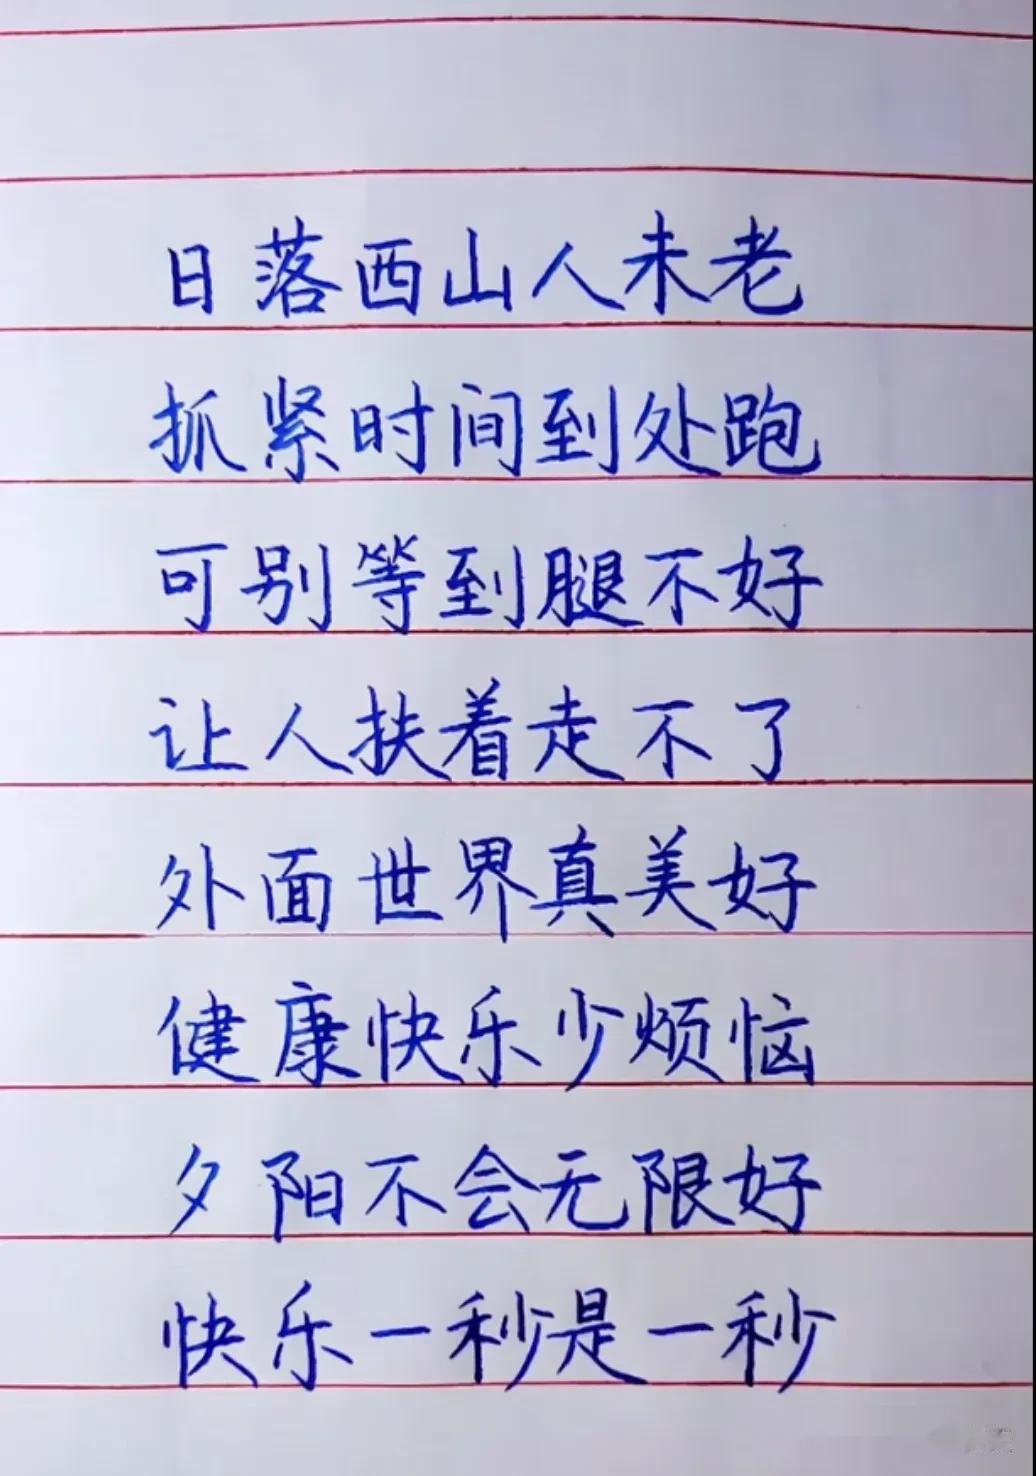 日落西山人未老
抓紧时间到处跑
可别等到腿不好
让人扶着走不了
外面世界真美好
健康快乐少烦恼
夕阳不会无限好
快乐一秒是一秒